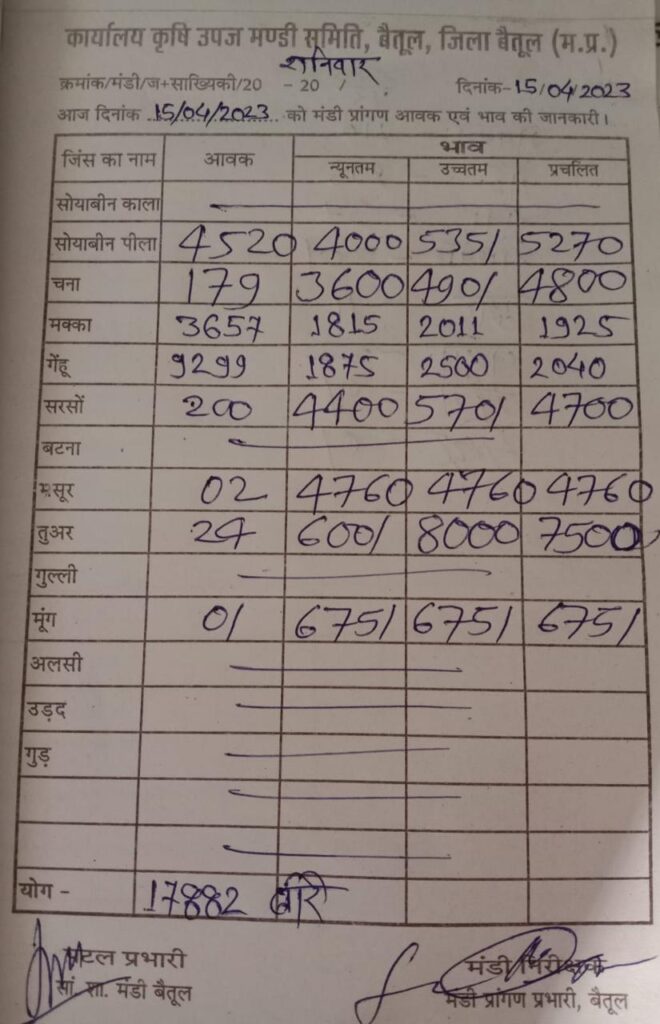 कार्यालय कृषि उपज मण्डी समिति, बैतूल, जिला बैतूल (म.प्र.)
शनिवार
क्रमांक/मंडी/ज+साख्यिकी/20 - 20 / दिनांक-15/04/2023
आज दिनांक 15/04/2023 को मंडी प्रांगण आवक एवं भाव की जानकारी।
जिंस का नाम आवक भाव
न्यूनतम उच्चतम प्रचलित
सोयाबीन काला
सोयाबीन पीला 4520 4000 5351 5270
चना 179 3600 4901 4800
मक्का 3657 1815 2011 1925
गेंहू 9299 1875 2500 2040
सरसों 200 4400 5701 4700
बटना
मसूर 02 4760 4760 4760
तुअर 24 6001 8000 7500
गुल्ली
मूंग 01 6751 6751 6751
अलसी
उड़द
गुड़
योग - 17882 बोरे
प्रभारी मंडी निरीक्षक
सां. शा. मंडी बैतूल मंडी प्रांगण प्रभारी, बैतूल